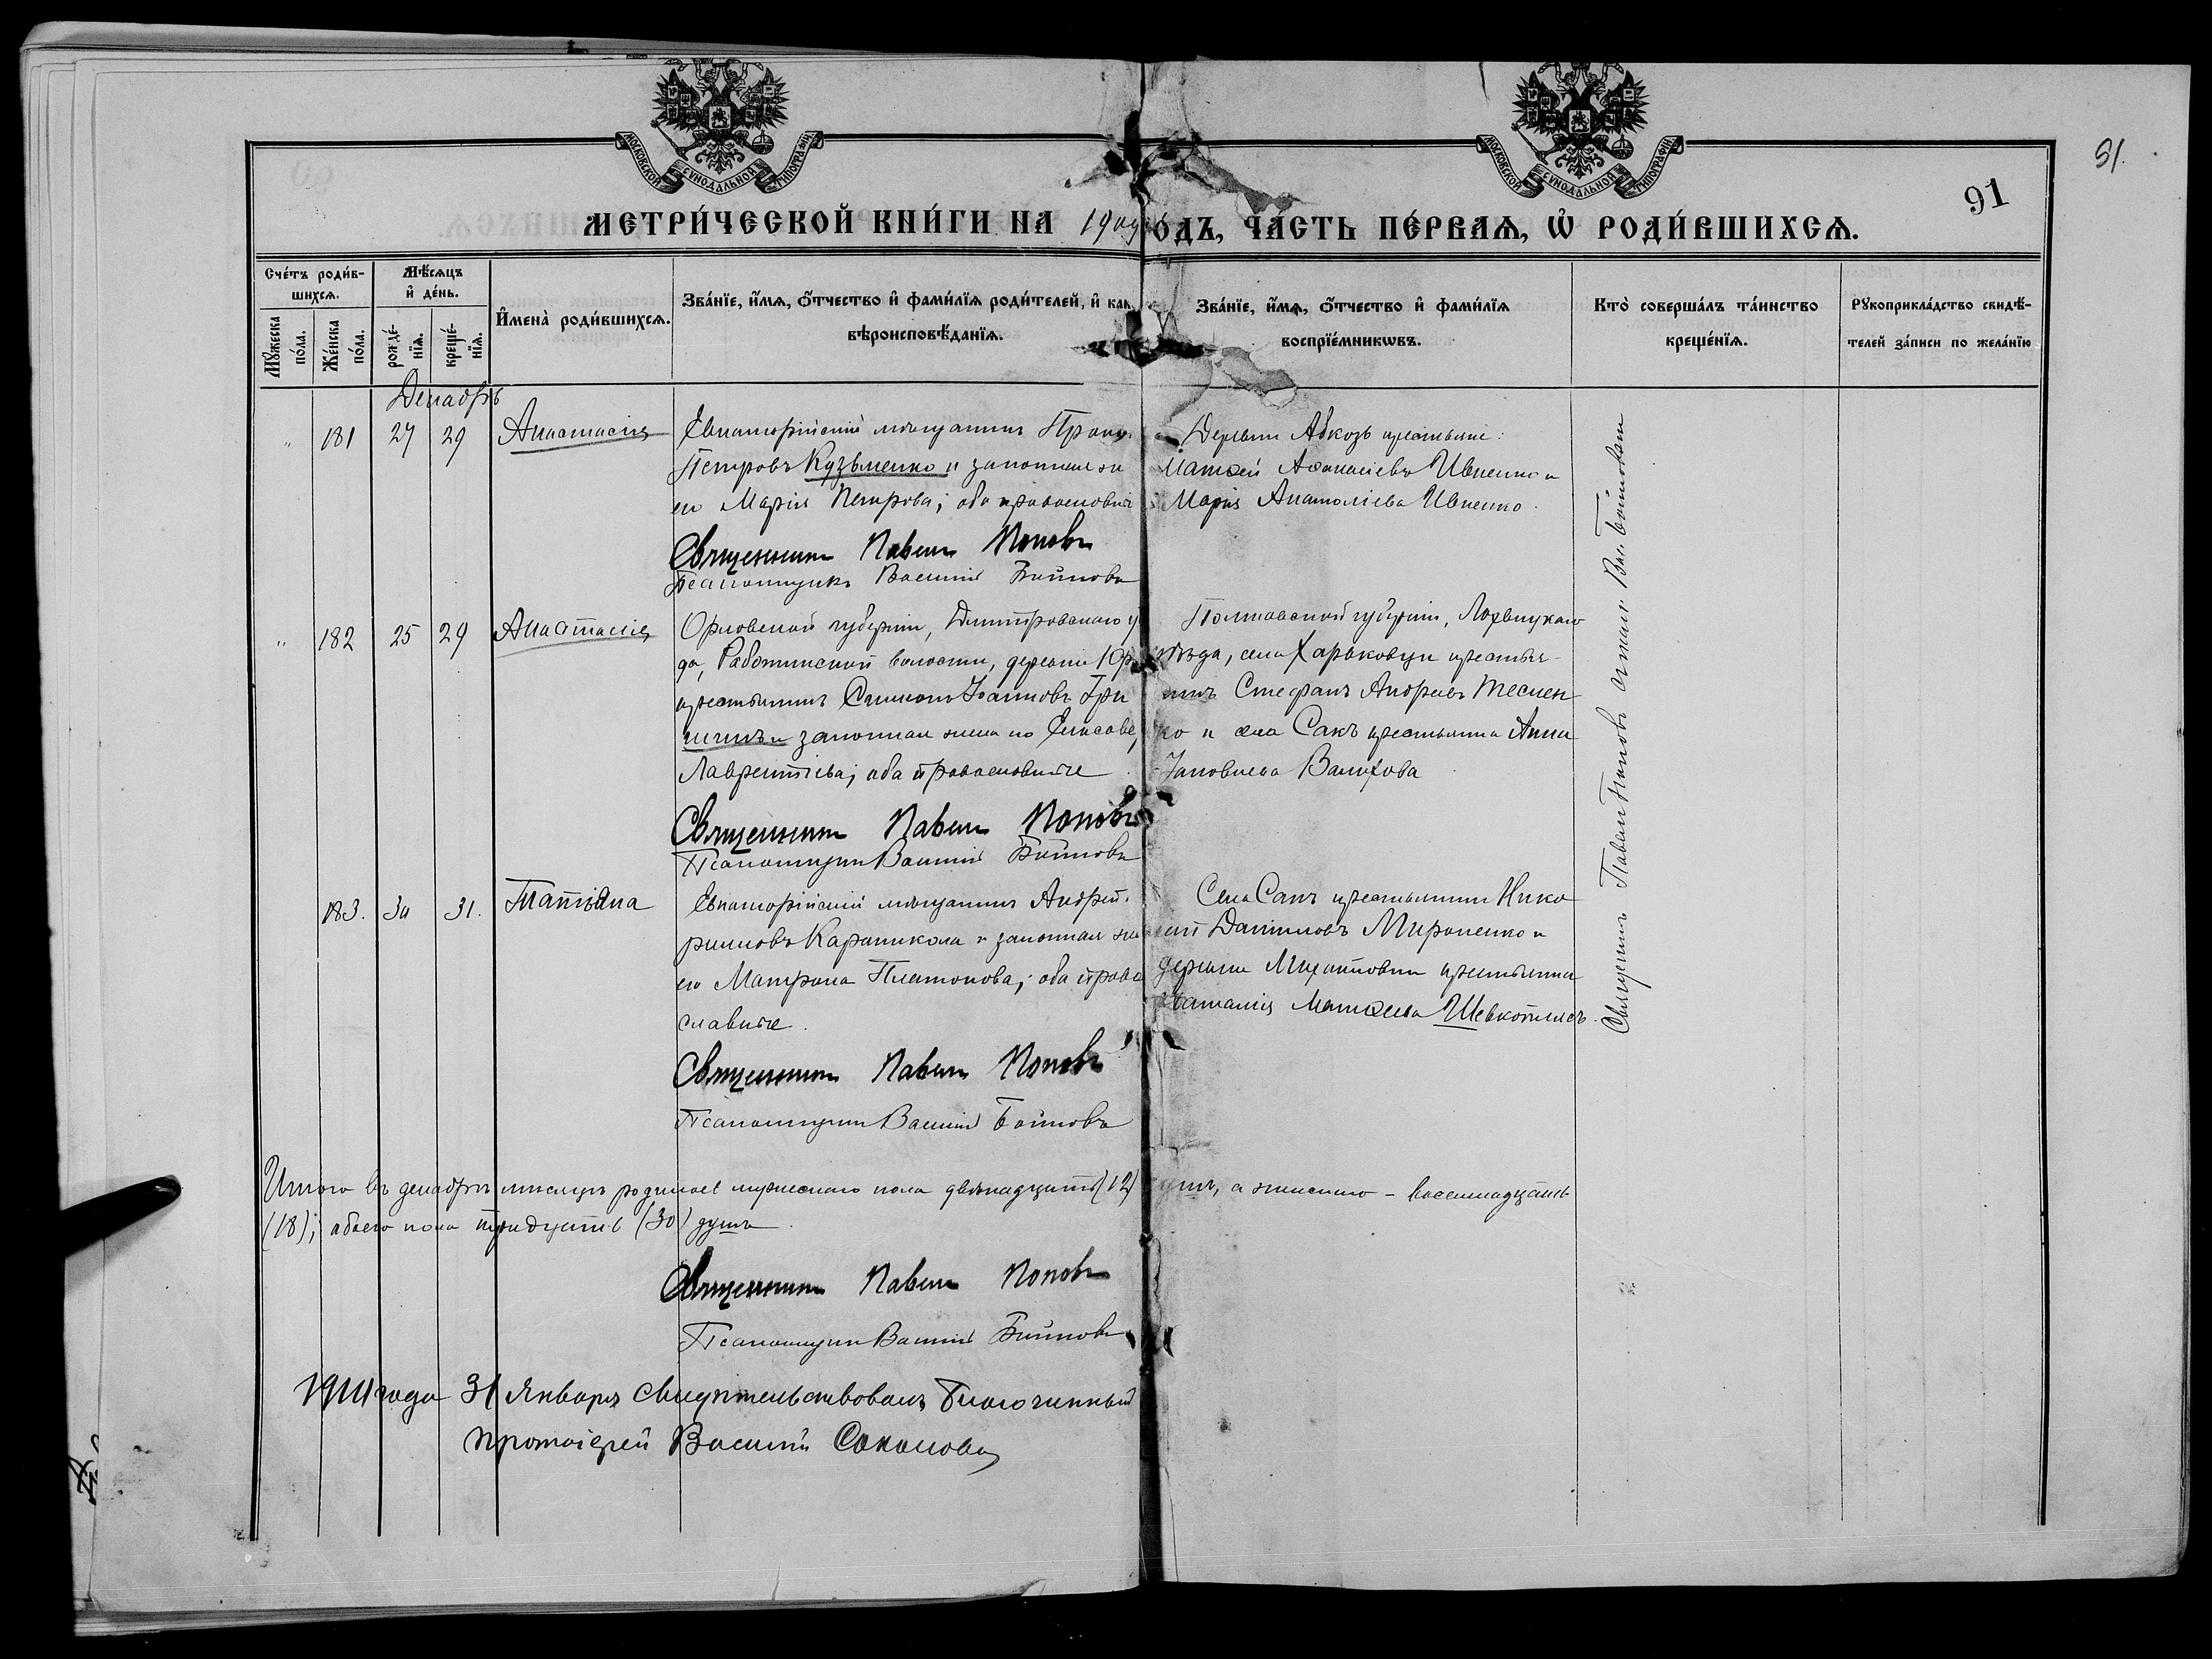 МОСКОВСКОЙ СУНОДАЛЬНОЙ ТИПОГРАФІИ
МОСКОВСКОЙ СУНОДАЛЬНОЙ ТИПОГРАФІИ
91.
91
МЕТРИ́ЧЕСКОЙ КНИ́ГИ НА 1909
ОДЪ, ЧА́СТЬ ПЕ́РВАѦ, Ѡ҆ РОДИ́ВШИХСѦ.
Сче́тъ роди́в-
шихсѧ.
Мꙋжеска
по́ла.
Же́нска
по́ла.
Мѣ́сѧцъ
и҆ де́нь.
рожде́-
нїѧ.
креще́-
нїѧ.
И҆мена̀ роди́вшихсѧ.
Зва́нїе, и҆́мѧ, ѻ҆́тчество и҆ фами́лїѧ роди́телей, и҆ как
вѣроисповѣ́данїѧ.
Зва́нїе, и҆́мѧ, ѻ҆́тчество и҆ фами́лїѧ
воспрїе́мникѡвъ.
Кто̀ соверша́лъ та́инство
креще́нїѧ.
Рꙋкоприкла́дство свидѣ́-
телей за́писи по жела́нїю
Декабрь
" 181 27 29 Анастасія
Евпаторійскій мѣщанинъ
Петровъ Кузьменко и законная
его Марія Петрова; оба православные
Священникъ Павелъ Поповъ
Псаломщикъ Василій Бойновъ
Деревни Абкозъ крестьяне:
Матѳей Аѳанасіевъ Ивненко и
Марія Анатоліева Ивненко.
" 182 25 29 Анастасія
Орловской губерніи, Дмитровскаго у
да, Работинской волости, деревни
крестьянинъ Симеонъ Іоанновъ Гри
шинъ и законная жена его Елисаве
Лаврентіева; оба православные
Священникъ Павелъ Поповъ
Псаломщикъ Василій Бойновъ
Полтавской губерніи, Лохвицкаго
уѣзда, села Харьковци крестья-
нинъ Стефанъ Андреевъ Теслен
ко и села Сакъ крестьянка Анна
Іаковлева Валихова
183. 30 31. Татіана
Евпаторійскій мѣщанинъ Андрей
Караникола и законная же
его Матрона Платонова; оба право
славные.
Священникъ Павелъ Поповъ
Псаломщикъ Василій Бойновъ
Села Сакъ крестьянинъ Нико
лай Даниловъ Мироненко и
деревни Михайловки крестьянка
Наталія Матѳеева Шевкоплясъ.
Священникъ Павелъ Поповъ
Итого въ декабрѣ мѣсяцѣ родилось мужескаго пола двѣнадцать (12)
а женскаго - восемнадцать
(18); обоего пола тридцать (30) душъ.
Священникъ Павелъ Поповъ
Псаломщикъ Василій Бойновъ
года 31 Января свидѣтельствовалъ Благочинный
Протоіерей Василій Соколовъ